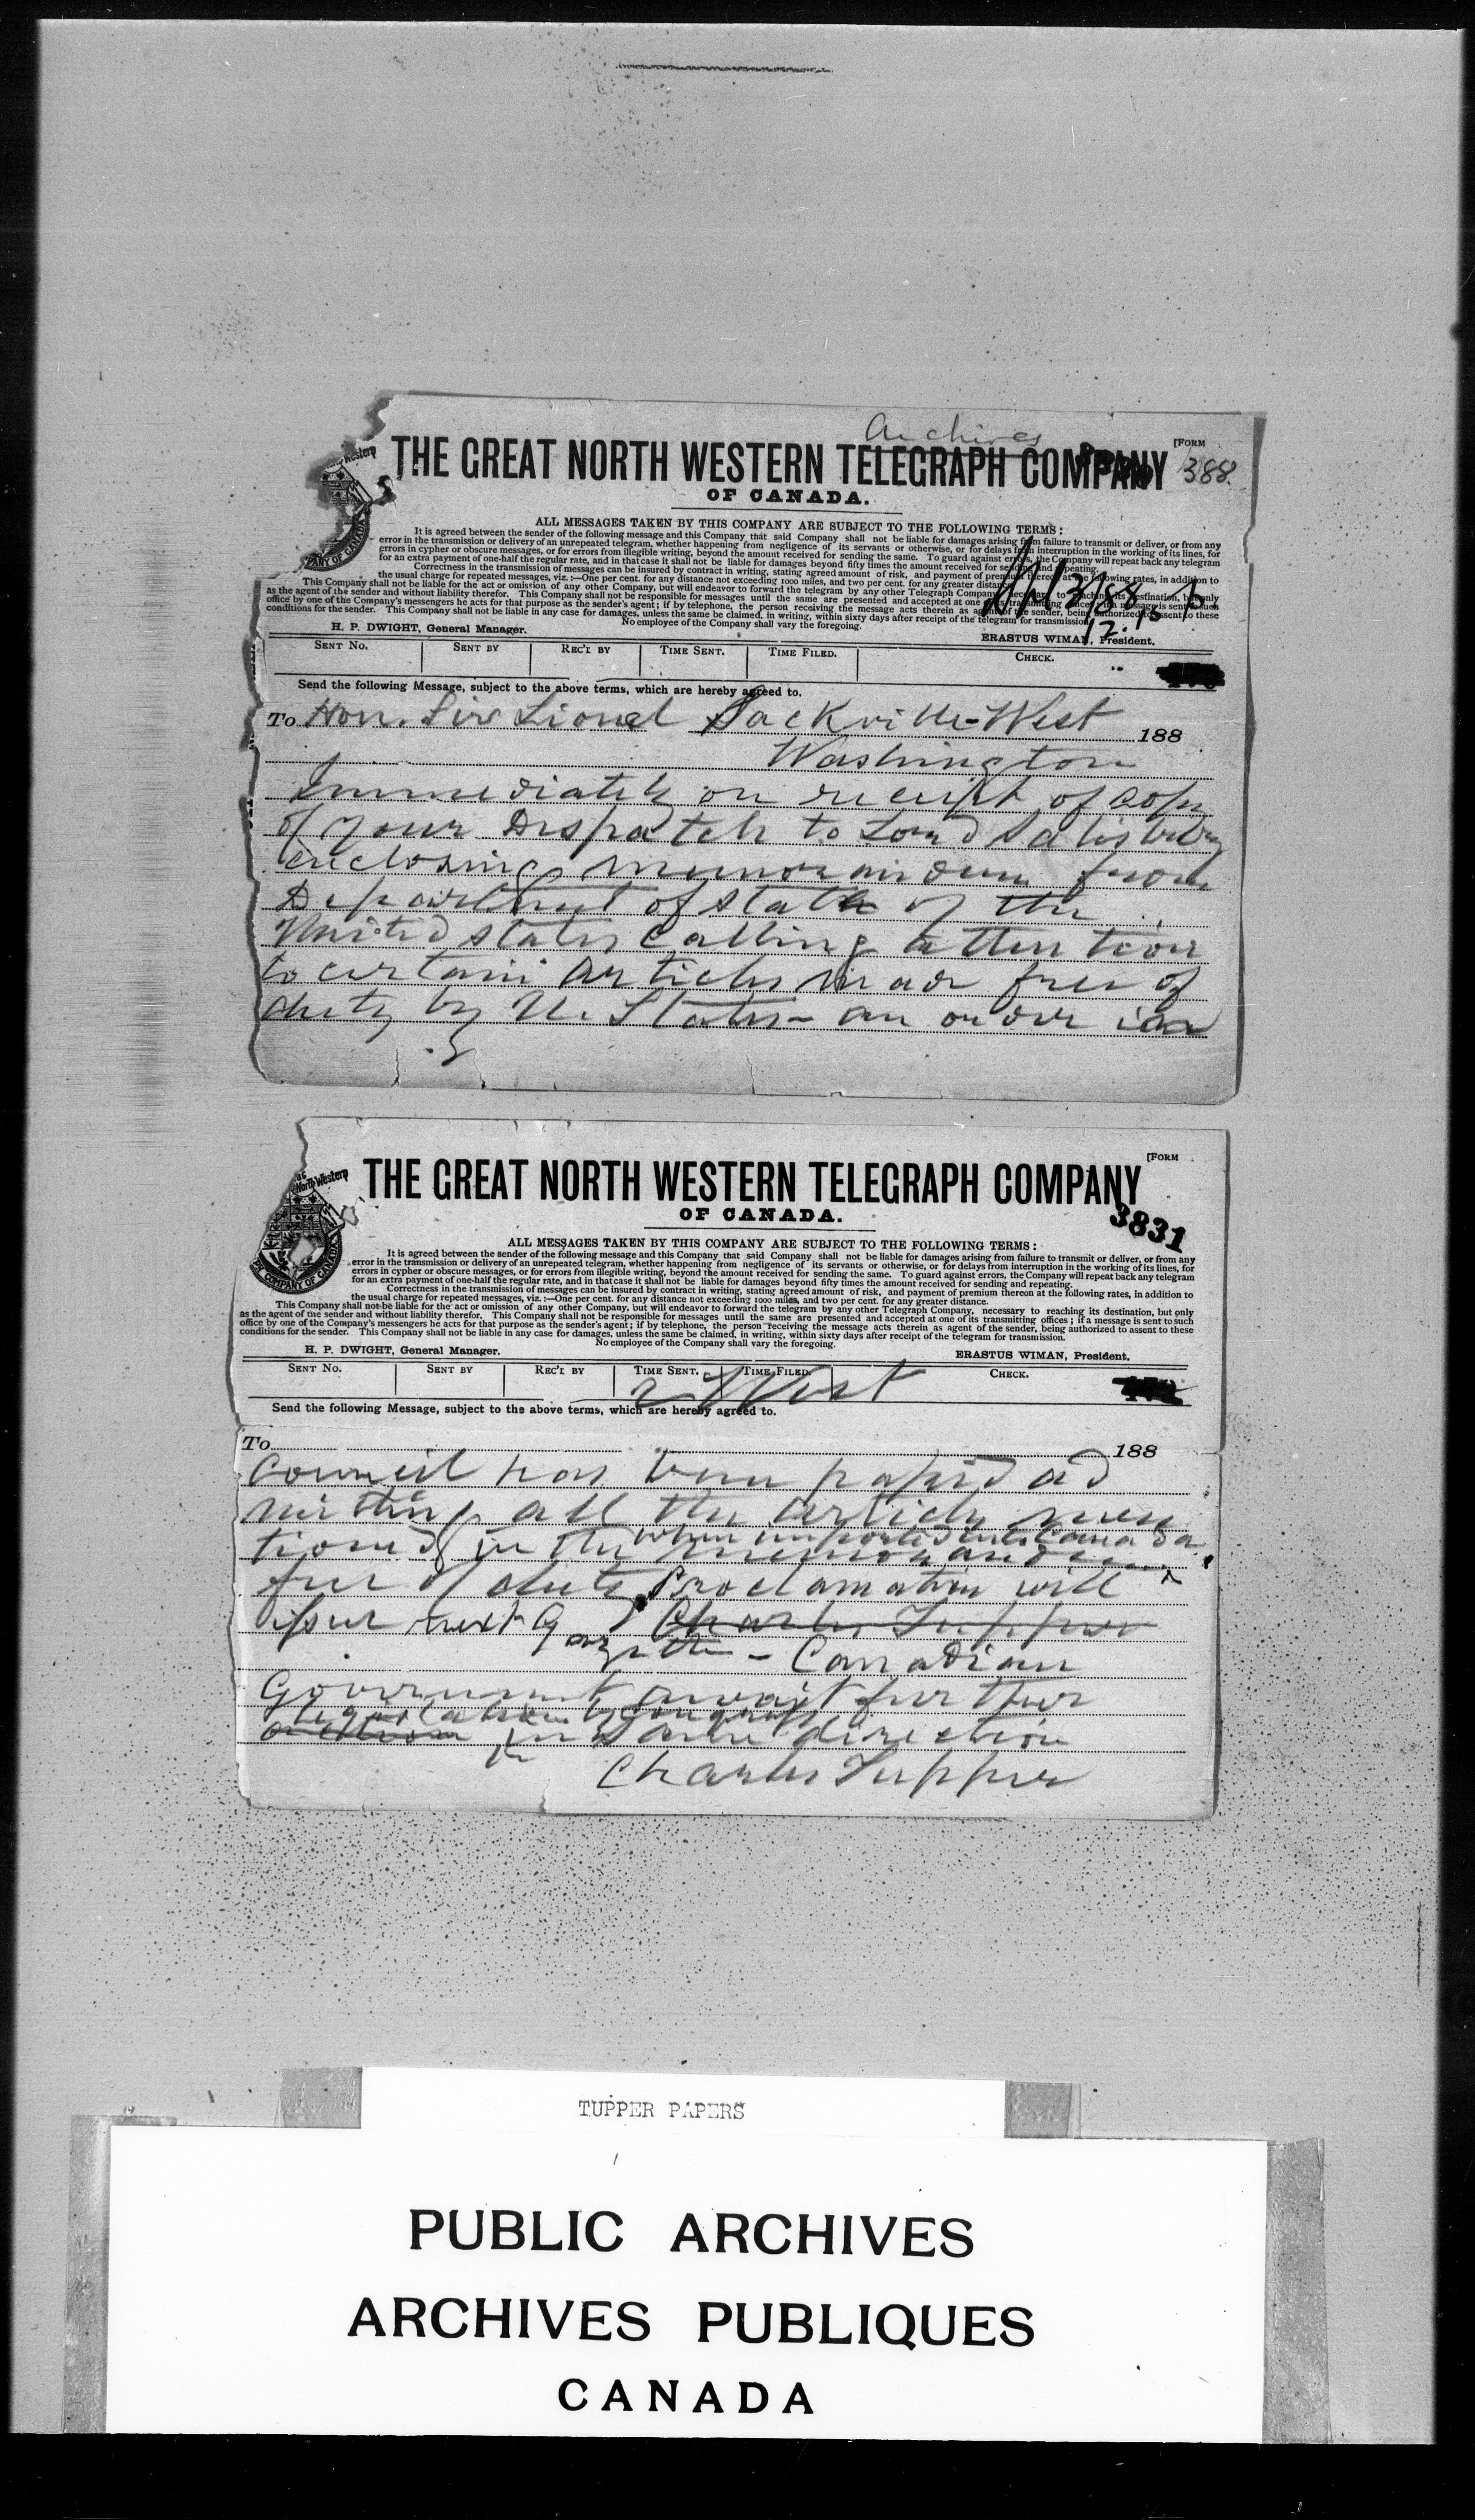 Archives
[FORM
THE GREAT NORTH WESTERN TELEGRAPH COMPANY 388
OF CANADA.
ALL MESSAGES TAKEN BY THIS COMPANY ARE SUBJECT TO THE FOLLOWING TERMS:
It is agreed between the sender of the following message and this Company that said Company shall not be liable for damages arising from failure to transmit or deliver, or from any
error in the transmission or delivery of an unrepeated telegram, whether happening from negligence of its servants or otherwise, or for delays from interruption in the working of its lines, for
errors in cypher or obscure messages, or for errors from illegible writing, beyond the amount received for sending the same. To guard against errors, the Company will repeat back any telegram
for an extra payment of one-half the regular rate, and in that case it shall not be liable for damages beyond fifty times the amount received for sending and repeating.
Correctness in the transmission of messages can be insured by contract in writing, stating agreed amount of risk, and payment of premium thereon at the following rates, in addition to
the usual charge for repeated messages, viz.:—One per cent. for any distance not exceeding 1000 miles, and two per cent. for any greater distance.
This Company shall not be liable for the act or omission of any other Company, but will endeavor to forward the telegram by any other Telegraph Company necessary to reaching its destination, but only
as the agent of the sender and without liability therefor. This Company shall not be responsible for messages until the same are presented and accepted at one of its transmitting offices; if a message is sent to such
office by one of the Company's messengers he acts for that purpose as the sender's agent; if by telephone, the person receiving the message acts therein as agent of the sender, being authorized to assent to these
conditions for the sender. This Company shall not be liable in any case for damages, unless the same be claimed, in writing, within sixty days after receipt of the telegram for transmission.
No employee of the Company shall vary the foregoing.
H. P. DWIGHT, General Manager. ERASTUS WIMAN, President.
SENT NO. SENT BY REC'L BY TIME SENT. TIME FILED. CHECK.
Send the following Message, subject to the above terms, which are hereby agreed to.
To Hon. Sir Lionel Sackville-West 188
Washington
Immediately on receipt of copy
of your Dispatch to Lord Salisbury
enclosing memorandum from
Department of State of the
United States calling attention
to certain articles made free of
duty by U. States - an order in
[FORM
THE GREAT NORTH WESTERN TELEGRAPH COMPANY
OF CANADA.
3831
ALL MESSAGES TAKEN BY THIS COMPANY ARE SUBJECT TO THE FOLLOWING TERMS:
It is agreed between the sender of the following message and this Company that said Company shall not be liable for damages arising from failure to transmit or deliver, or from any
error in the transmission or delivery of an unrepeated telegram, whether happening from negligence of its servants or otherwise, or for delays from interruption in the working of its lines, for
errors in cypher or obscure messages, or for errors from illegible writing, beyond the amount received for sending the same. To guard against errors, the Company will repeat back any telegram
for an extra payment of one-half the regular rate, and in that case it shall not be liable for damages beyond fifty times the amount received for sending and repeating.
Correctness in the transmission of messages can be insured by contract in writing, stating agreed amount of risk, and payment of premium thereon at the following rates, in addition to
the usual charge for repeated messages, viz.:—One per cent. for any distance not exceeding 1000 miles, and two per cent. for any greater distance.
This Company shall not be liable for the act or omission of any other Company, but will endeavor to forward the telegram by any other Telegraph Company, necessary to reaching its destination, but only
as the agent of the sender and without liability therefor. This Company shall not be responsible for messages until the same are presented and accepted at one of its transmitting offices; if a message is sent to such
office by one of the Company's messengers he acts for that purpose as the sender's agent; if by telephone, the person receiving the message acts therein as agent of the sender, being authorized to assent to these
conditions for the sender. This Company shall not be liable in any case for damages, unless the same be claimed, in writing, within sixty days after receipt of the telegram for transmission.
No employee of the Company shall vary the foregoing.
H. P. DWIGHT, General Manager. ERASTUS WIMAN, President.
SENT NO. SENT BY REC'L BY TIME SENT. TIME FILED. CHECK.
2 West
Send the following Message, subject to the above terms, which are hereby agreed to.
To 188
Council has been passed ad
mitting all the articles men
when imported into Canada
tioned in the memorandum
free of duty Proclamation will
issue next Charles Tupper
Gazette - Canadian
Government await further
legislation by Congress
in same direction
Charles Tupper
TUPPER PAPERS
PUBLIC ARCHIVES
ARCHIVES PUBLIQUES
CANADA